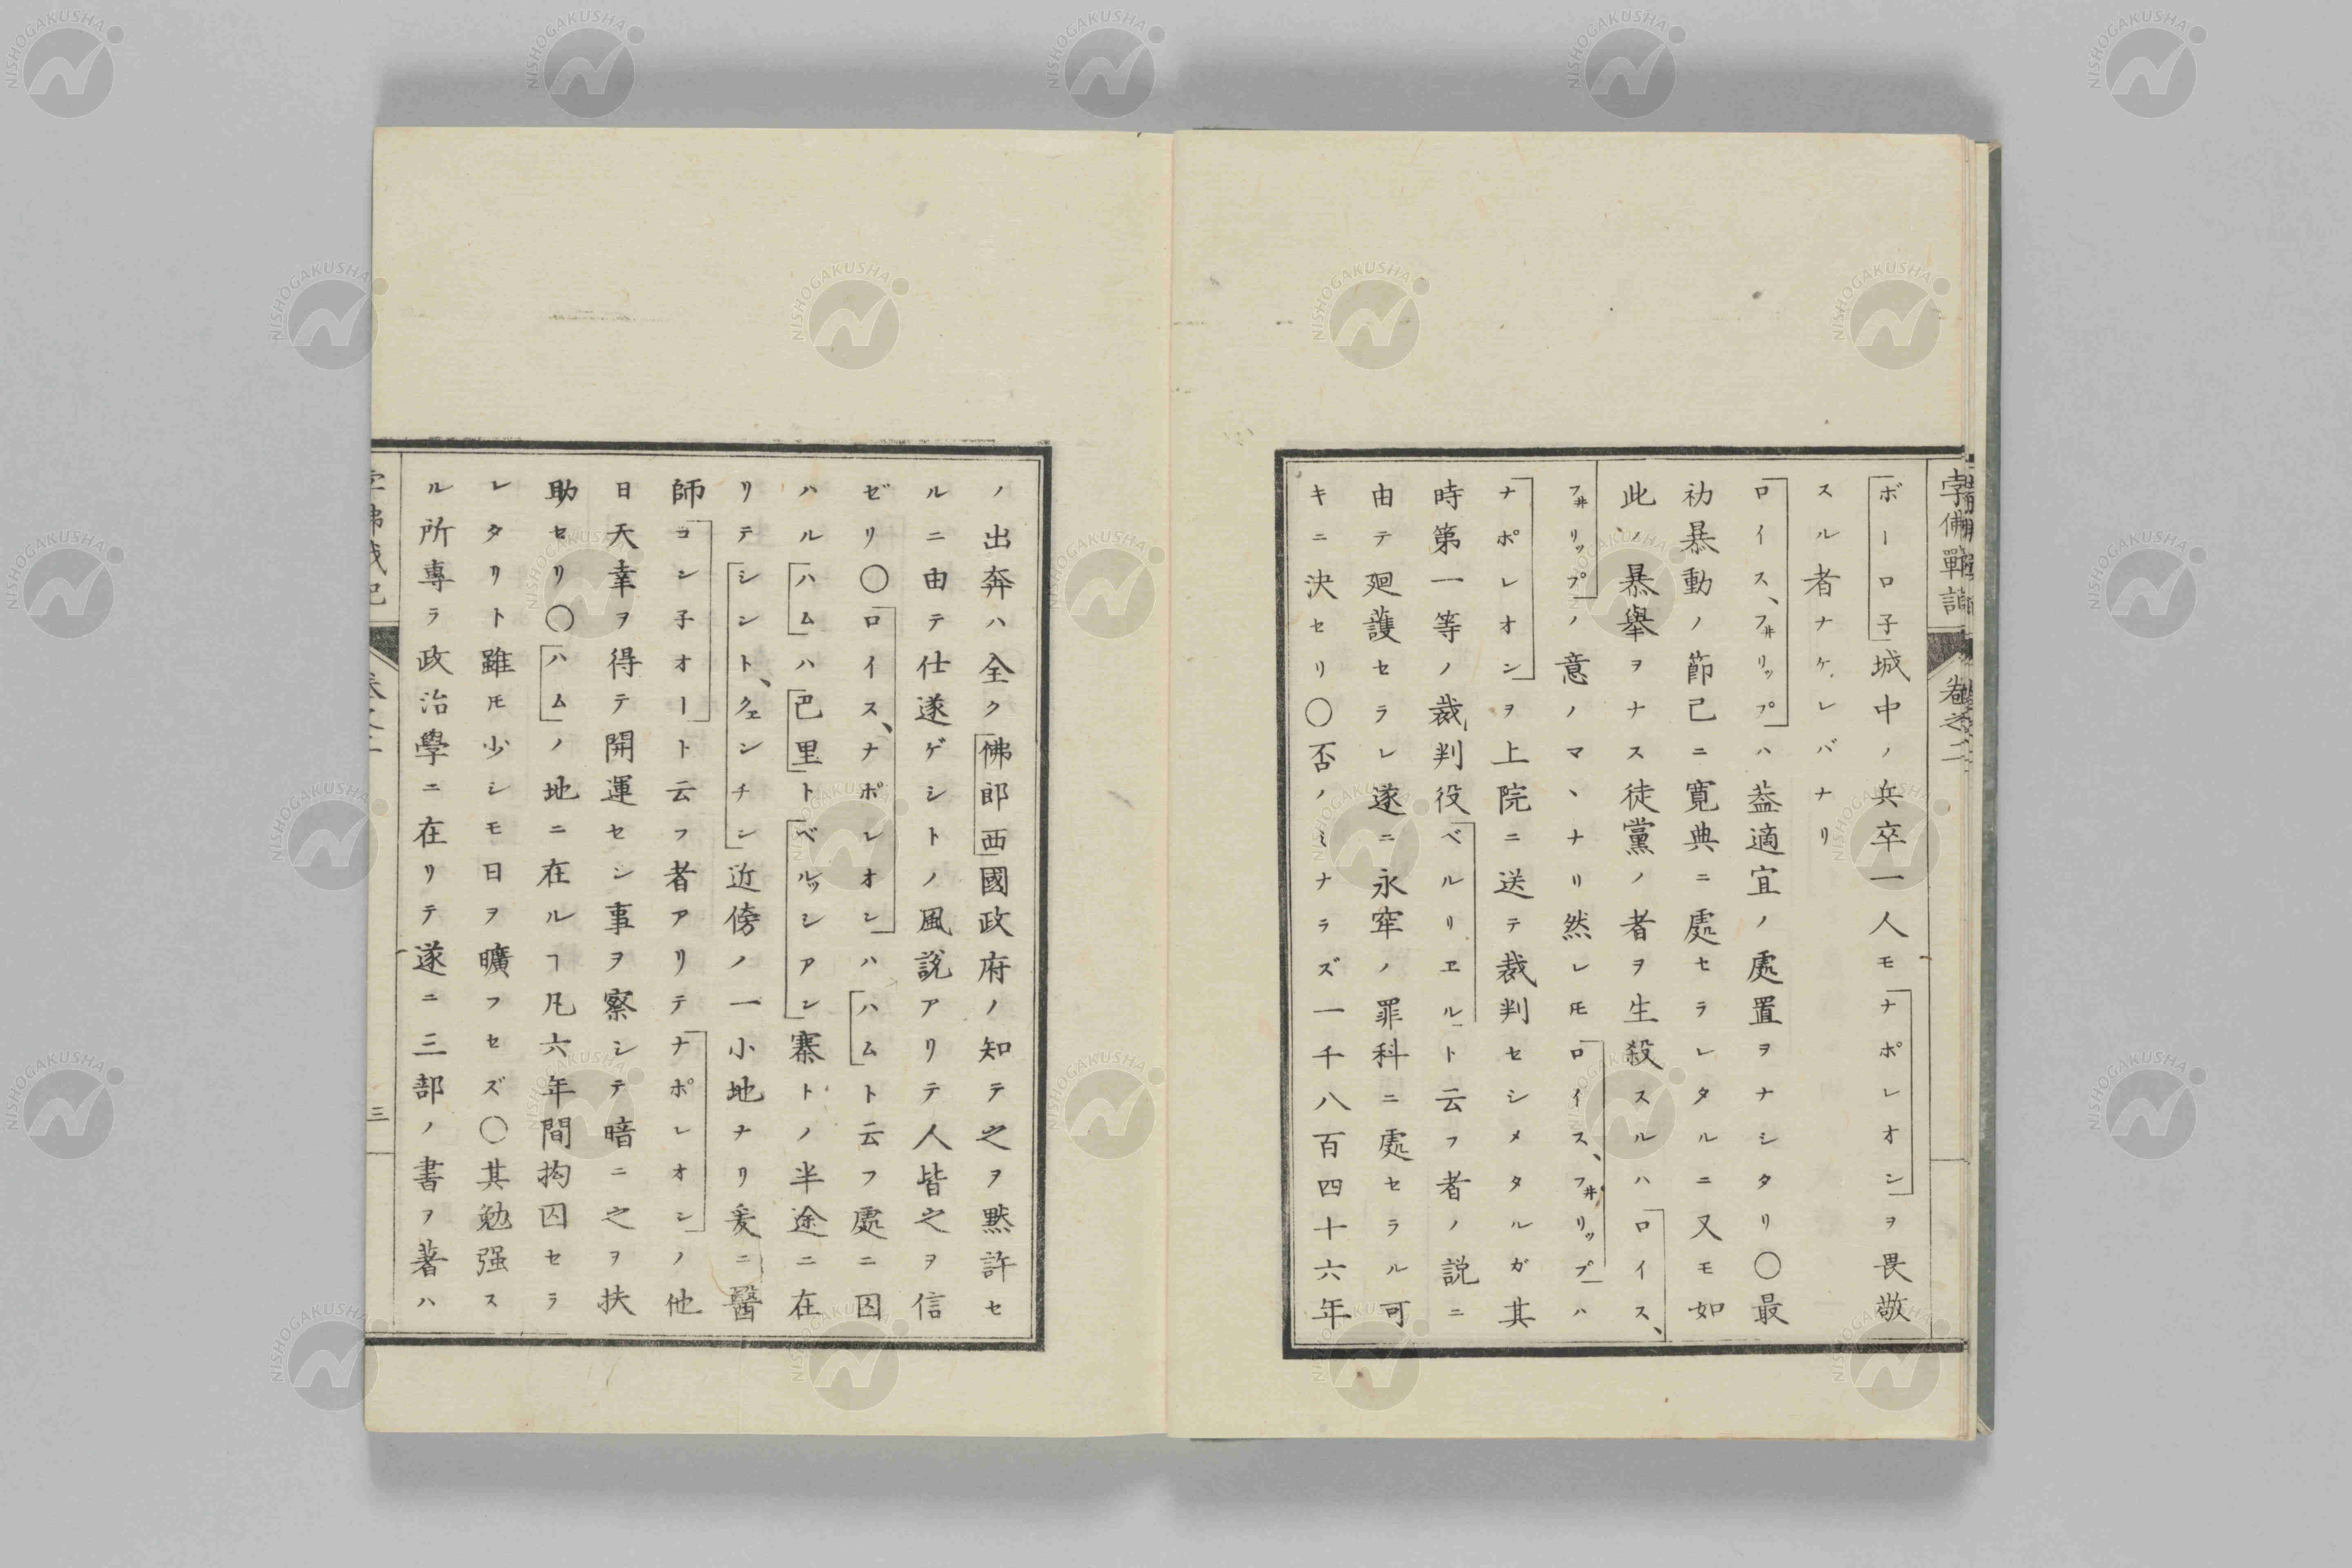 孛佛戰記 卷之二
ボーロ子城中ノ兵卒一人モナポレオンヲ畏敬
スル者ナケレバナリ
ロイス、フ井リップハ益適宜ノ處置ヲナシタリ〇最
初暴動ノ節已ニ寛典ニ處セラレタルニ又モ如
此ノ暴舉ヲナス徒黨ノ者ヲ生殺スルハロイス、
フ井リップノ意ノマヽナリ然レ𪜈ロイス、フ井リップハ
ナポレオンヲ上院ニ送テ裁判セシメタルガ其
時第一等ノ裁判役ベルリヱルト云フ者ノ説ニ
由テ廻護セラレ遂ニ永牢ノ罪科ニ處セラル可
キニ決セリ〇否ノミナラズ一千八百四十六年
ノ出奔ハ全ク佛郎西國政府ノ知テ之ヲ黙許セ
ルニ由テ仕遂ゲシトノ風説アリテ人皆之ヲ信
ゼリ〇ロイス、ナポレオンハハムト云フ處ニ囚
ハルハムハ巴里トベルッシアン寨トノ半途ニ在
リテシント、クェンチン近傍ノ一小地ナリ爰ニ醫
師コン子オート云フ者アリテナポレオンノ他
日天幸ヲ得テ開運セシ事ヲ察シテ暗ニ之ヲ扶
助セリ〇ハムノ地ニ在ルヿ凡六年間拘囚セラ
レタリト雖𪜈少シモ日ヲ曠フセズ〇其勉强ス
ル所專ラ政治學ニ在リテ遂ニ三部ノ書ヲ著ハ
三